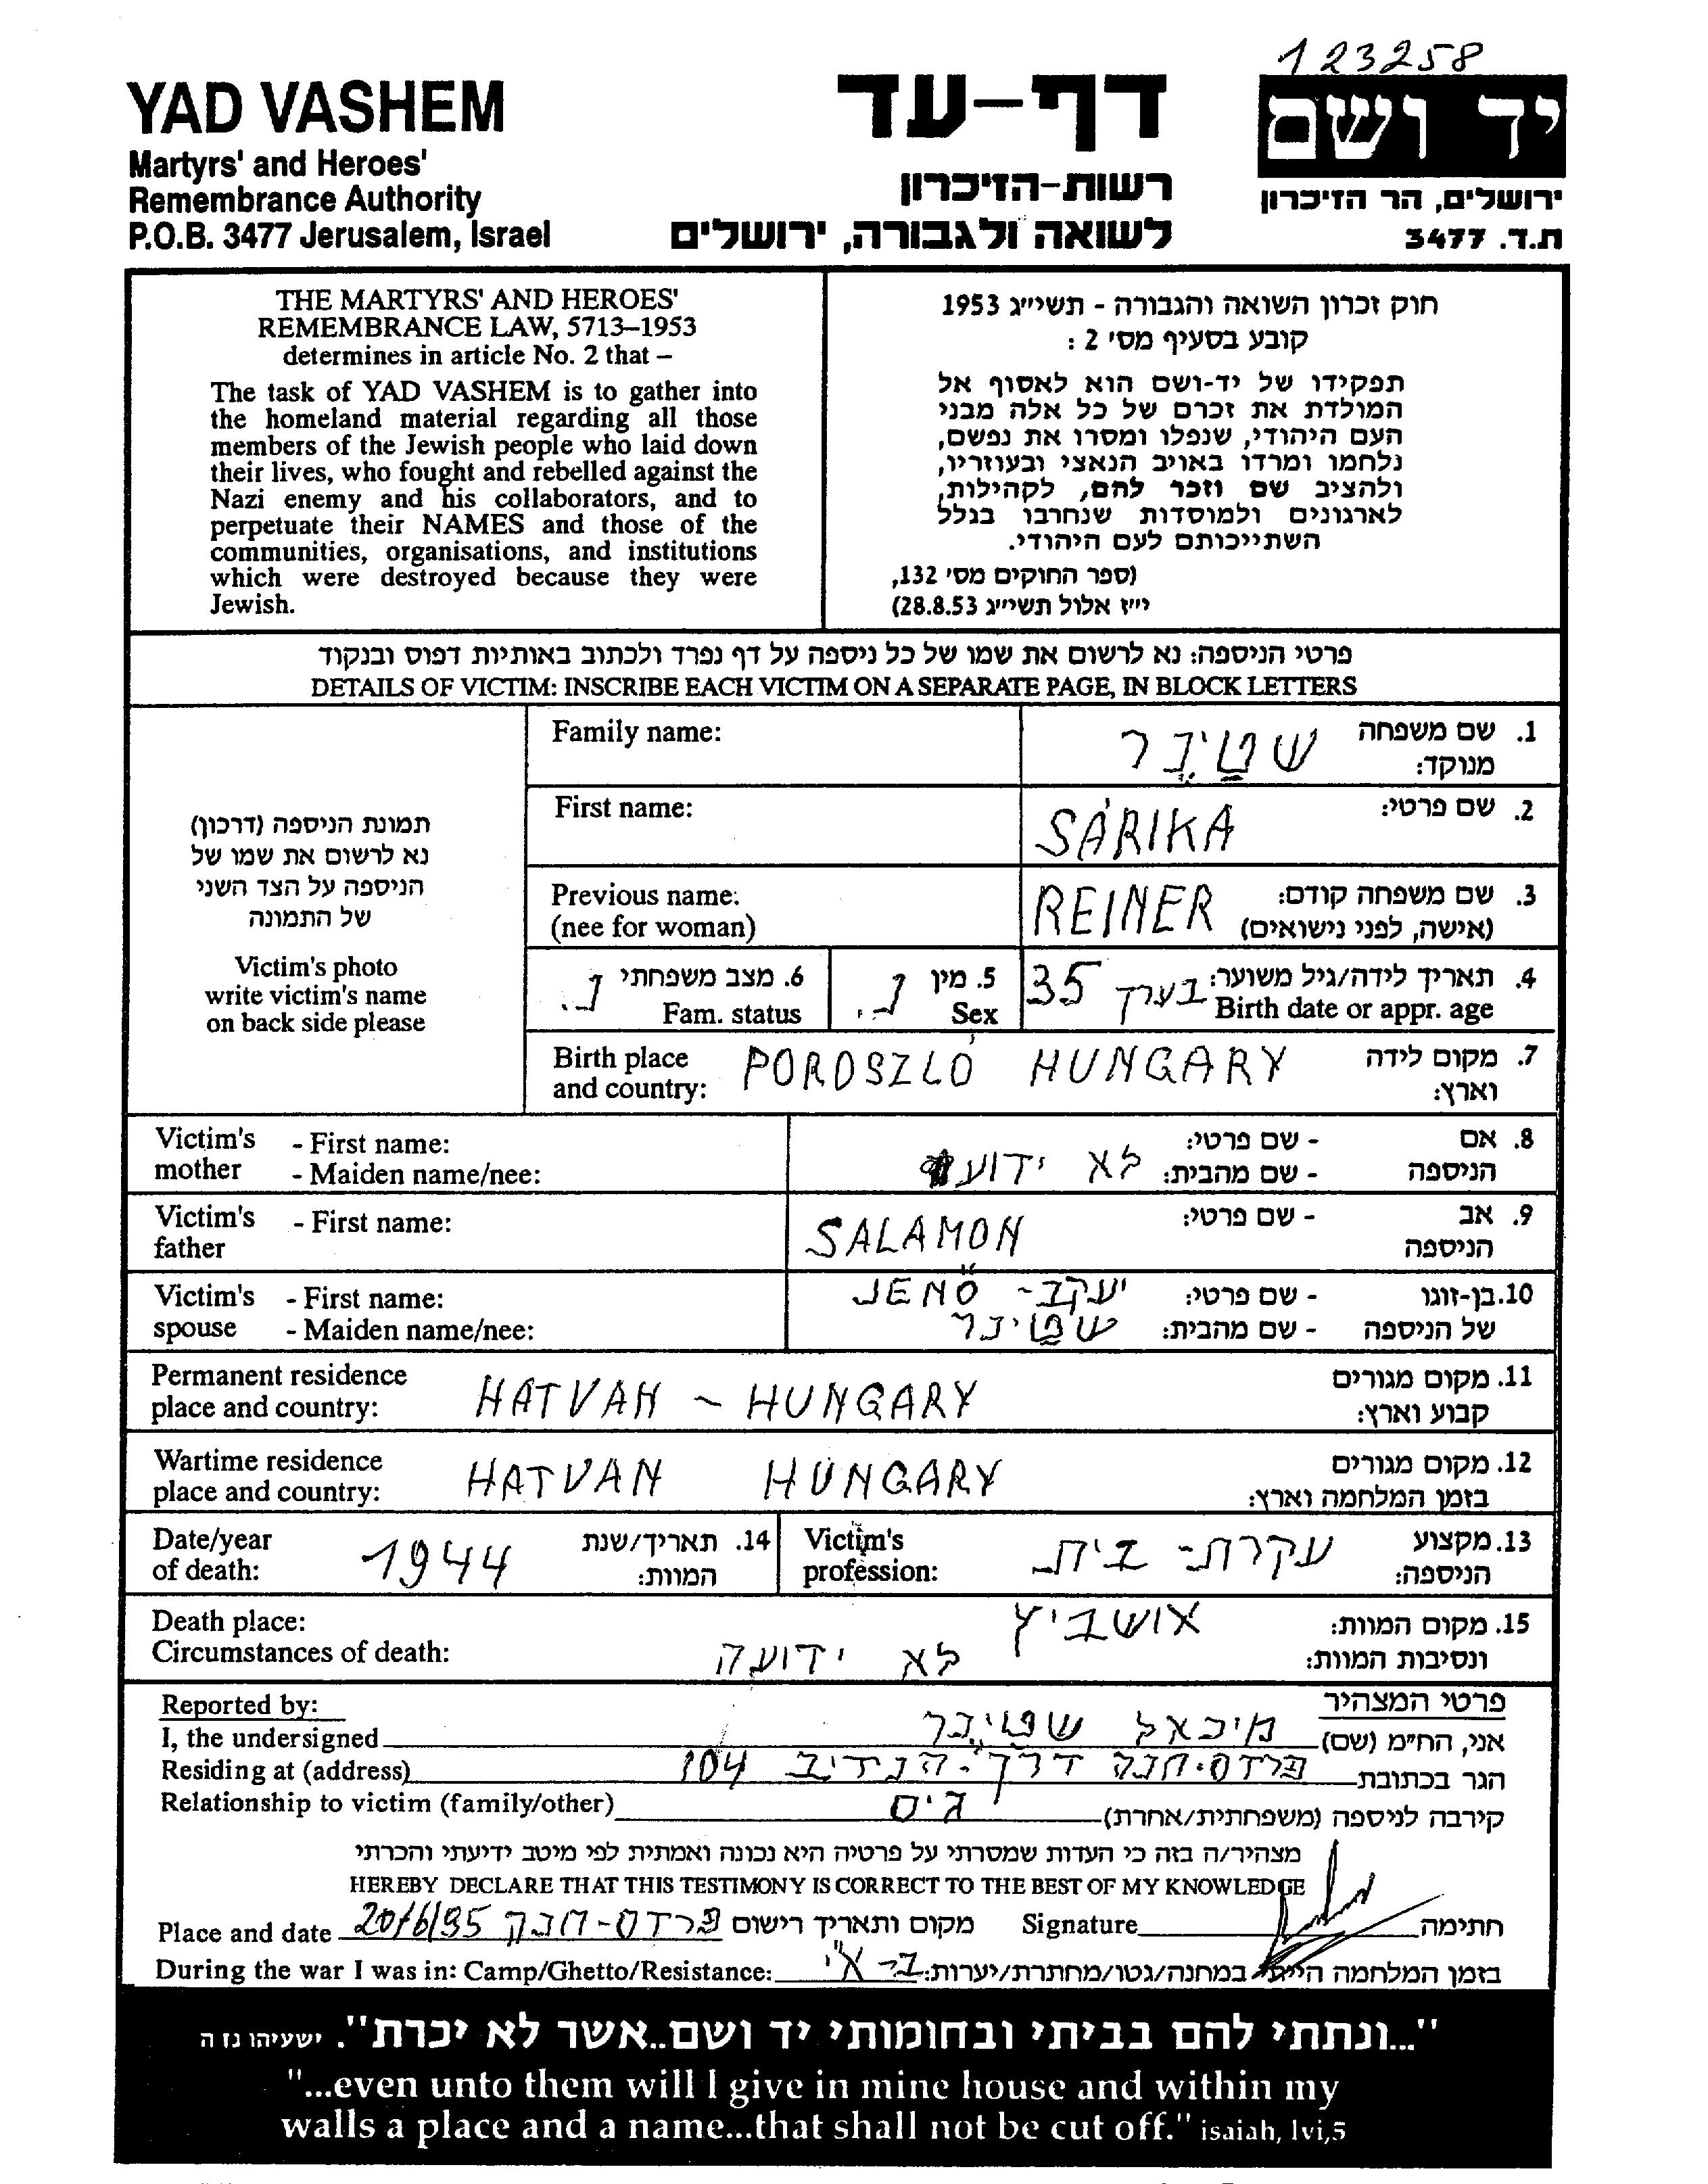 123258
YAD VASHEM
Martyrs' and Heroes'
Remembrance Authority
P.O.B. 3477 Jerusalem, Israel
דף-עד
רשות-הזיכרון
לשואה ולגבורה, ירושלים
יד ושם
ירושלים, הר הזיכרון
ת.ד. 3477
THE MARTYRS' AND HEROES'
REMEMBRANCE LAW, 5713–1953
determines in article No. 2 that –
The task of YAD VASHEM is to gather into
the homeland material regarding all those
members of the Jewish people who laid down
their lives, who fought and rebelled against the
Nazi enemy and his collaborators, and to
perpetuate their NAMES and those of the
communities, organisations, and institutions
which were destroyed because they were
Jewish.
חוק זכרון השואה והגבורה - תשי״ג 1953
קובע בסעיף מס׳ 2 :
תפקידו של יד-ושם הוא לאסוף אל
המולדת את זכרם של כל אלה מבני
העם היהודי, שנפלו ומסרו את נפשם,
נלחמו ומרדו באויב הנאצי ובעוזריו,
ולהציב שם וזכר להם, לקהילות,
לארגונים ולמוסדות שנחרבו בגלל
השתייכותם לעם היהודי.
(ספר החוקים מס׳ 132,
י״ז אלול תשי״ג 28.8.53)
פרטי הניספה: נא לרשום את שמו של כל ניספה על דף נפרד ולכתוב באותיות דפוס ובנקוד
DETAILS OF VICTIM: INSCRIBE EACH VICTIM ON A SEPARATE PAGE, IN BLOCK LETTERS
תמונת הניספה (דרכון)
נא לרשום את שמו של
הניספה על הצד השני
של התמונה
Victim's photo
write victim's name
on back side please
Family name: שטַיְנֶר 1. שם משפחה
מנוקד:
First name: SÁRIKA 2. שם פרטי:
Previous name: REINER 3. שם משפחה קודם:
(nee for woman) (אישה, לפני נישואים)
6. מצב משפחתי נ. 5. מין נ. 4. תאריך לידה/גיל משוער: בערך 35
Fam. status Sex Birth date or appr. age
Birth place POROSZLÓ HUNGARY 7. מקום לידה
and country: וארץ:
Victim's - First name: - שם פרטי: 8. אם
mother - Maiden name/nee: לא ידוע - שם מהבית: הניספה
Victim's - First name: SALAMON - שם פרטי: 9. אב
father הניספה
Victim's - First name: JENŐ - יעקב - שם פרטי: 10. בן-זוגו
spouse - Maiden name/nee: שטַיְנר - שם מהבית: של הניספה
Permanent residence HATVAN - HUNGARY 11. מקום מגורים
place and country: קבוע וארץ:
Wartime residence HATVAN HUNGARY 12. מקום מגורים
place and country: בזמן המלחמה וארץ:
Date/year 1944 14. תאריך/שנת Victim's עקרת-בית 13. מקצוע
of death: המוות: profession: הניספה:
Death place: אושביץ 15. מקום המוות:
Circumstances of death: לא ידועה ונסיבות המוות:
Reported by: פרטי המצהיר
I, the undersigned מיכאל שטַיְנר אני, הח״מ (שם)
Residing at (address) פרדס-חנה דרך-הנדיב 104 הגר בכתובת
Relationship to victim (family/other) גיס קירבה לניספה (משפחתית/אחרת)
מצהיר/ה בזה כי העדות שמסרתי על פרטיה היא נכונה ואמתית לפי מיטב ידיעתי והכרתי
HEREBY DECLARE THAT THIS TESTIMONY IS CORRECT TO THE BEST OF MY KNOWLEDGE
Place and date 20/6/95 פרדס-חנה מקום ותאריך רישום Signature חתימה
During the war I was in: Camp/Ghetto/Resistance: בזמן המלחמה הייתי במחנה/גטו/מחתרת/יערות:
"...ונתתי להם בביתי ובחומותי יד ושם..אשר לא יכרת". ישעיהו נז ה
"...even unto them will I give in mine house and within my
walls a place and a name...that shall not be cut off." isaiah, lvi,5